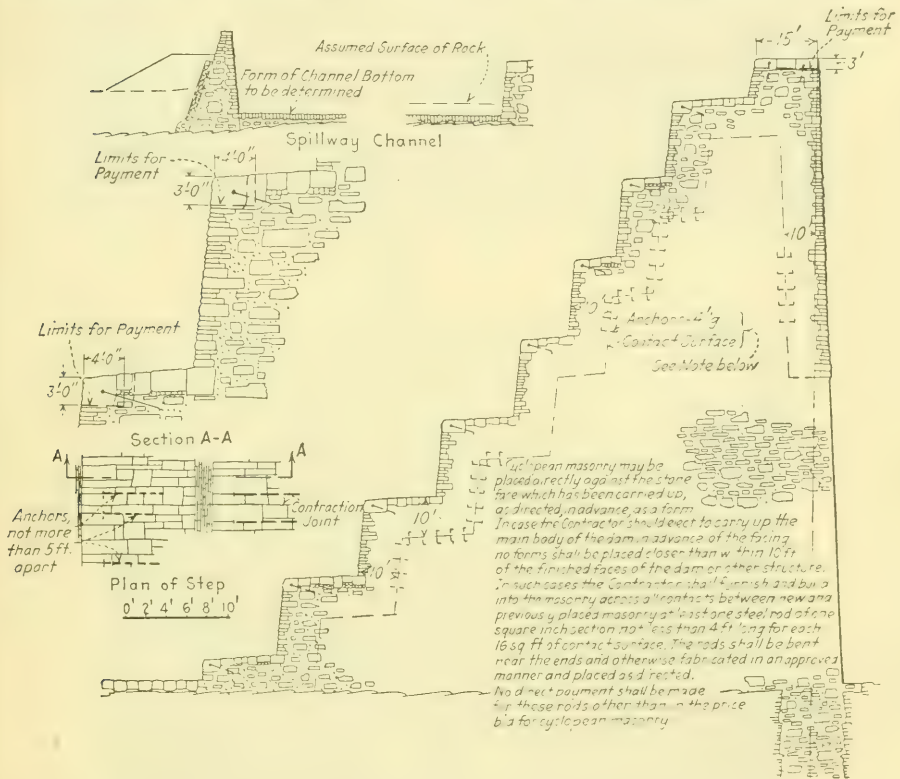 Limits for
Payment
15'
3'
Assumed Surface of Rock
Form of Channel Bottom
to be determined
Spillway Channel
Limits for
Payment
4'-0"
3'-0"
10'
Limits for Payment
4'-0"
3'-0"
Section A-A
A
A
Anchors,
not more
than 5 ft.
apart
Contraction
Joint
Plan of Step
0' 2' 4' 6' 8' 10'
10'
Anchors-4'
Contact Surface
See Note below
10'
10'
Cyclopean masonry may be
placed directly against the stone
face which has been carried up,
as directed, in advance, as a form
In case the Contractor should elect to carry up the
main body of the dam in advance of the facing
no forms shall be placed closer than within 10 ft
of the finished faces of the dam or other structure.
In such cases the Contractor shall furnish and build
into the masonry across all contacts between new and
previously placed masonry at least one steel rod of one
square inch section not less than 4 ft long for each
16 sq ft of contact surface. The rods shall be bent
near the ends and otherwise fabricated in an approved
manner and placed as directed.
No direct payment shall be made
for these rods other than in the price
bid for cyclopean masonry